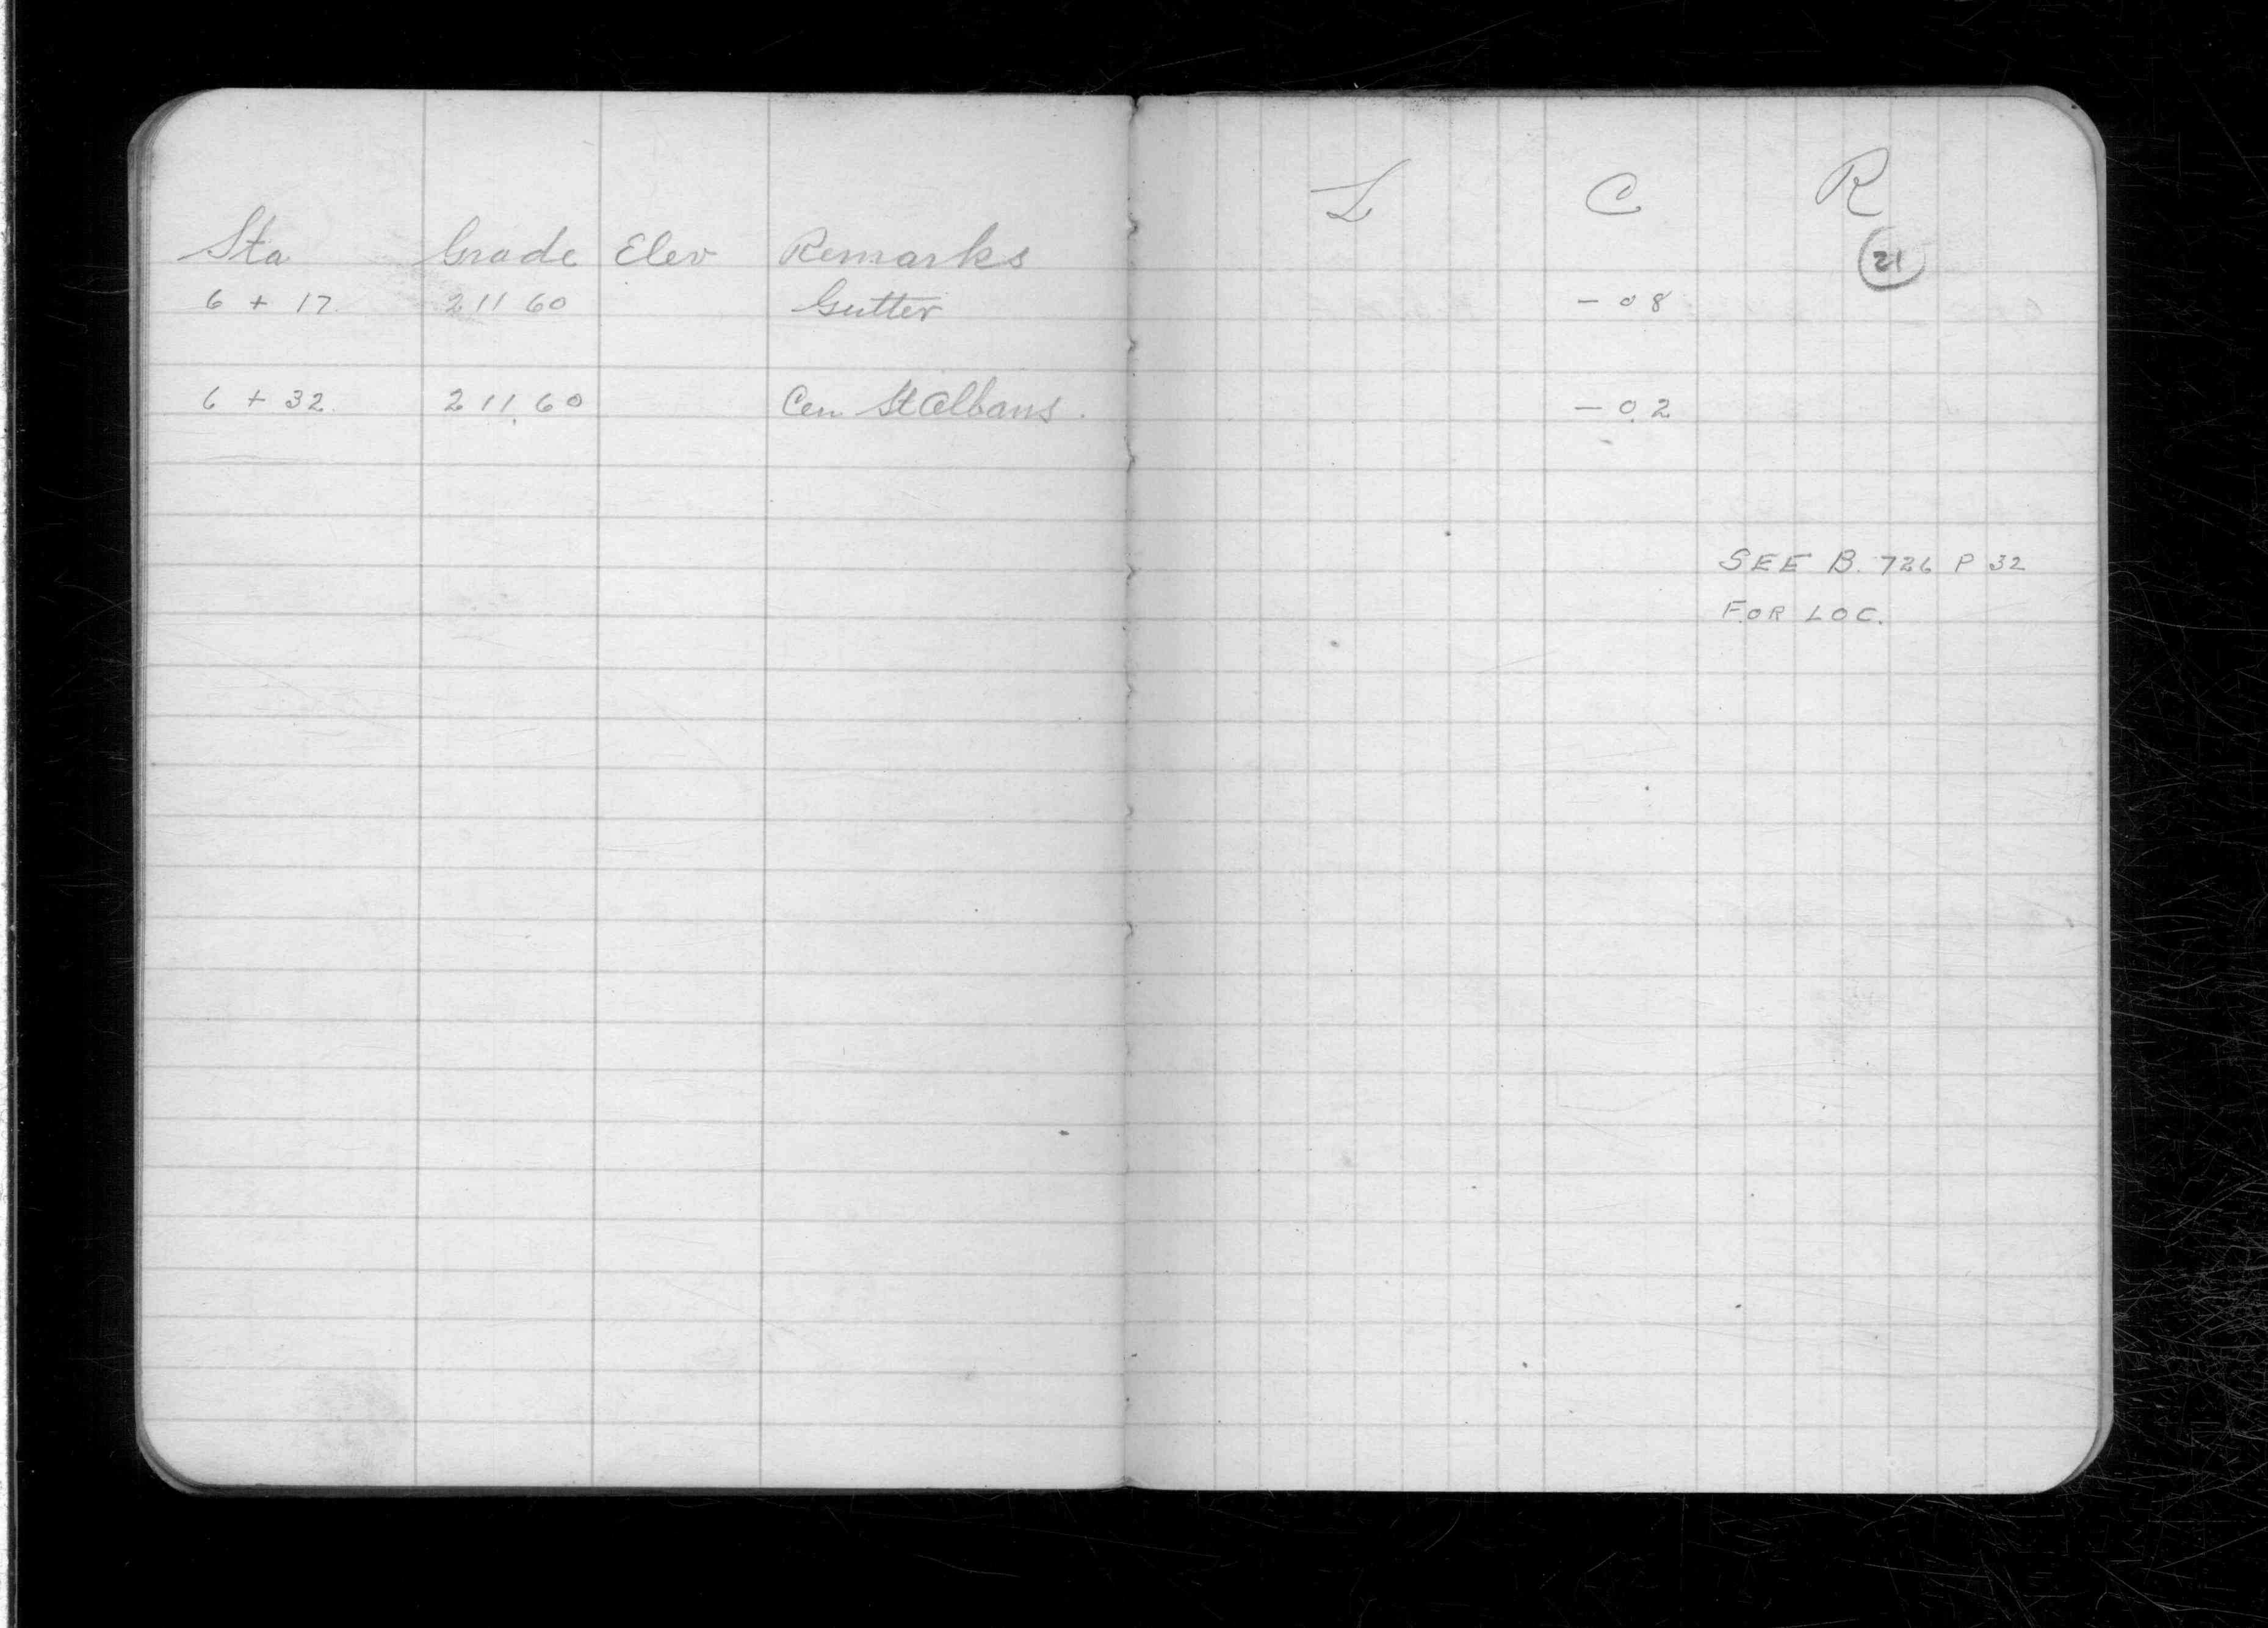 L C R
Sta Grade Elev Remarks
21
6 + 17. 211 60 Gutter - 0 8
6 + 32. 211.60 Cen St Albans. - 0.2
SEE B. 726 P 32
FOR LOC.